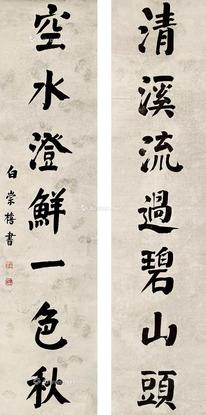 清溪流過碧山頭
空水澄鮮一色秋
白崇禧書